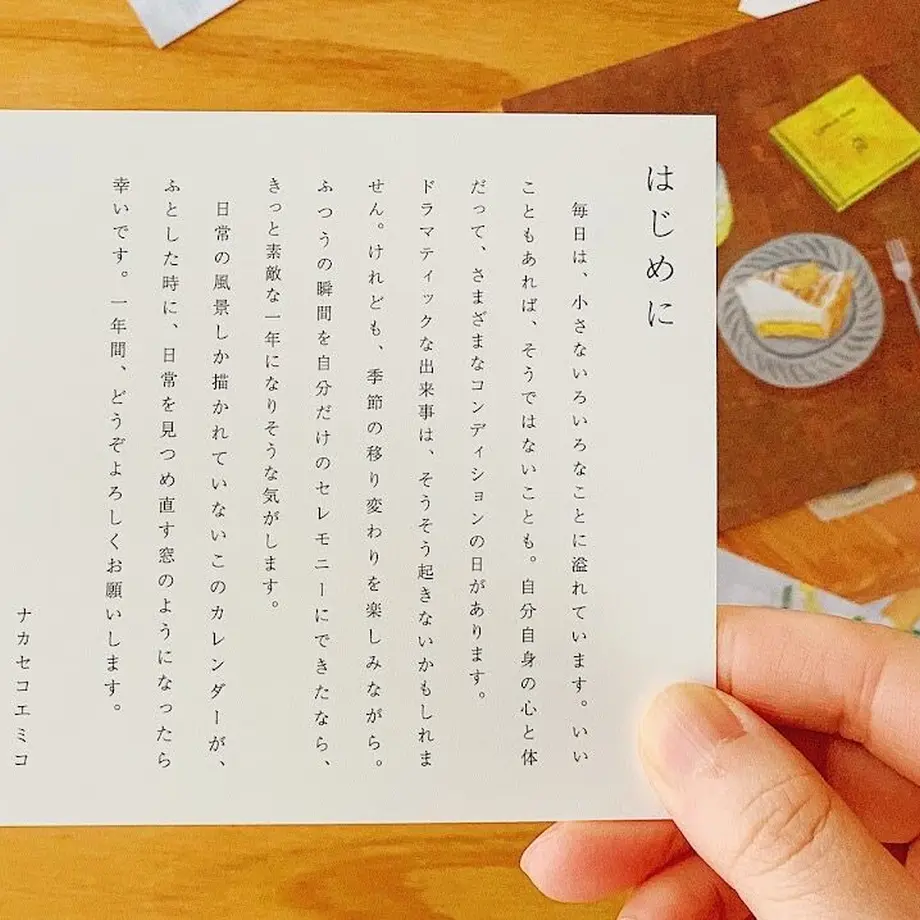 はじめに
毎日は、小さないろいろなことに溢れています。いい
こともあれば、そうではないことも。自分自身の心と体
だって、さまざまなコンディションの日があります。
ドラマティックな出来事は、そうそう起きないかもしれま
せん。けれども、季節の移り変わりを楽しみながら。
ふつうの瞬間を自分だけのセレモニーにできたなら、
きっと素敵な一年になりそうな気がします。
日常の風景しか描かれていないこのカレンダーが、
ふとした時に、日常を見つめ直す窓のようになったら
幸いです。一年間、どうぞよろしくお願いします。
ナカセコエミコ